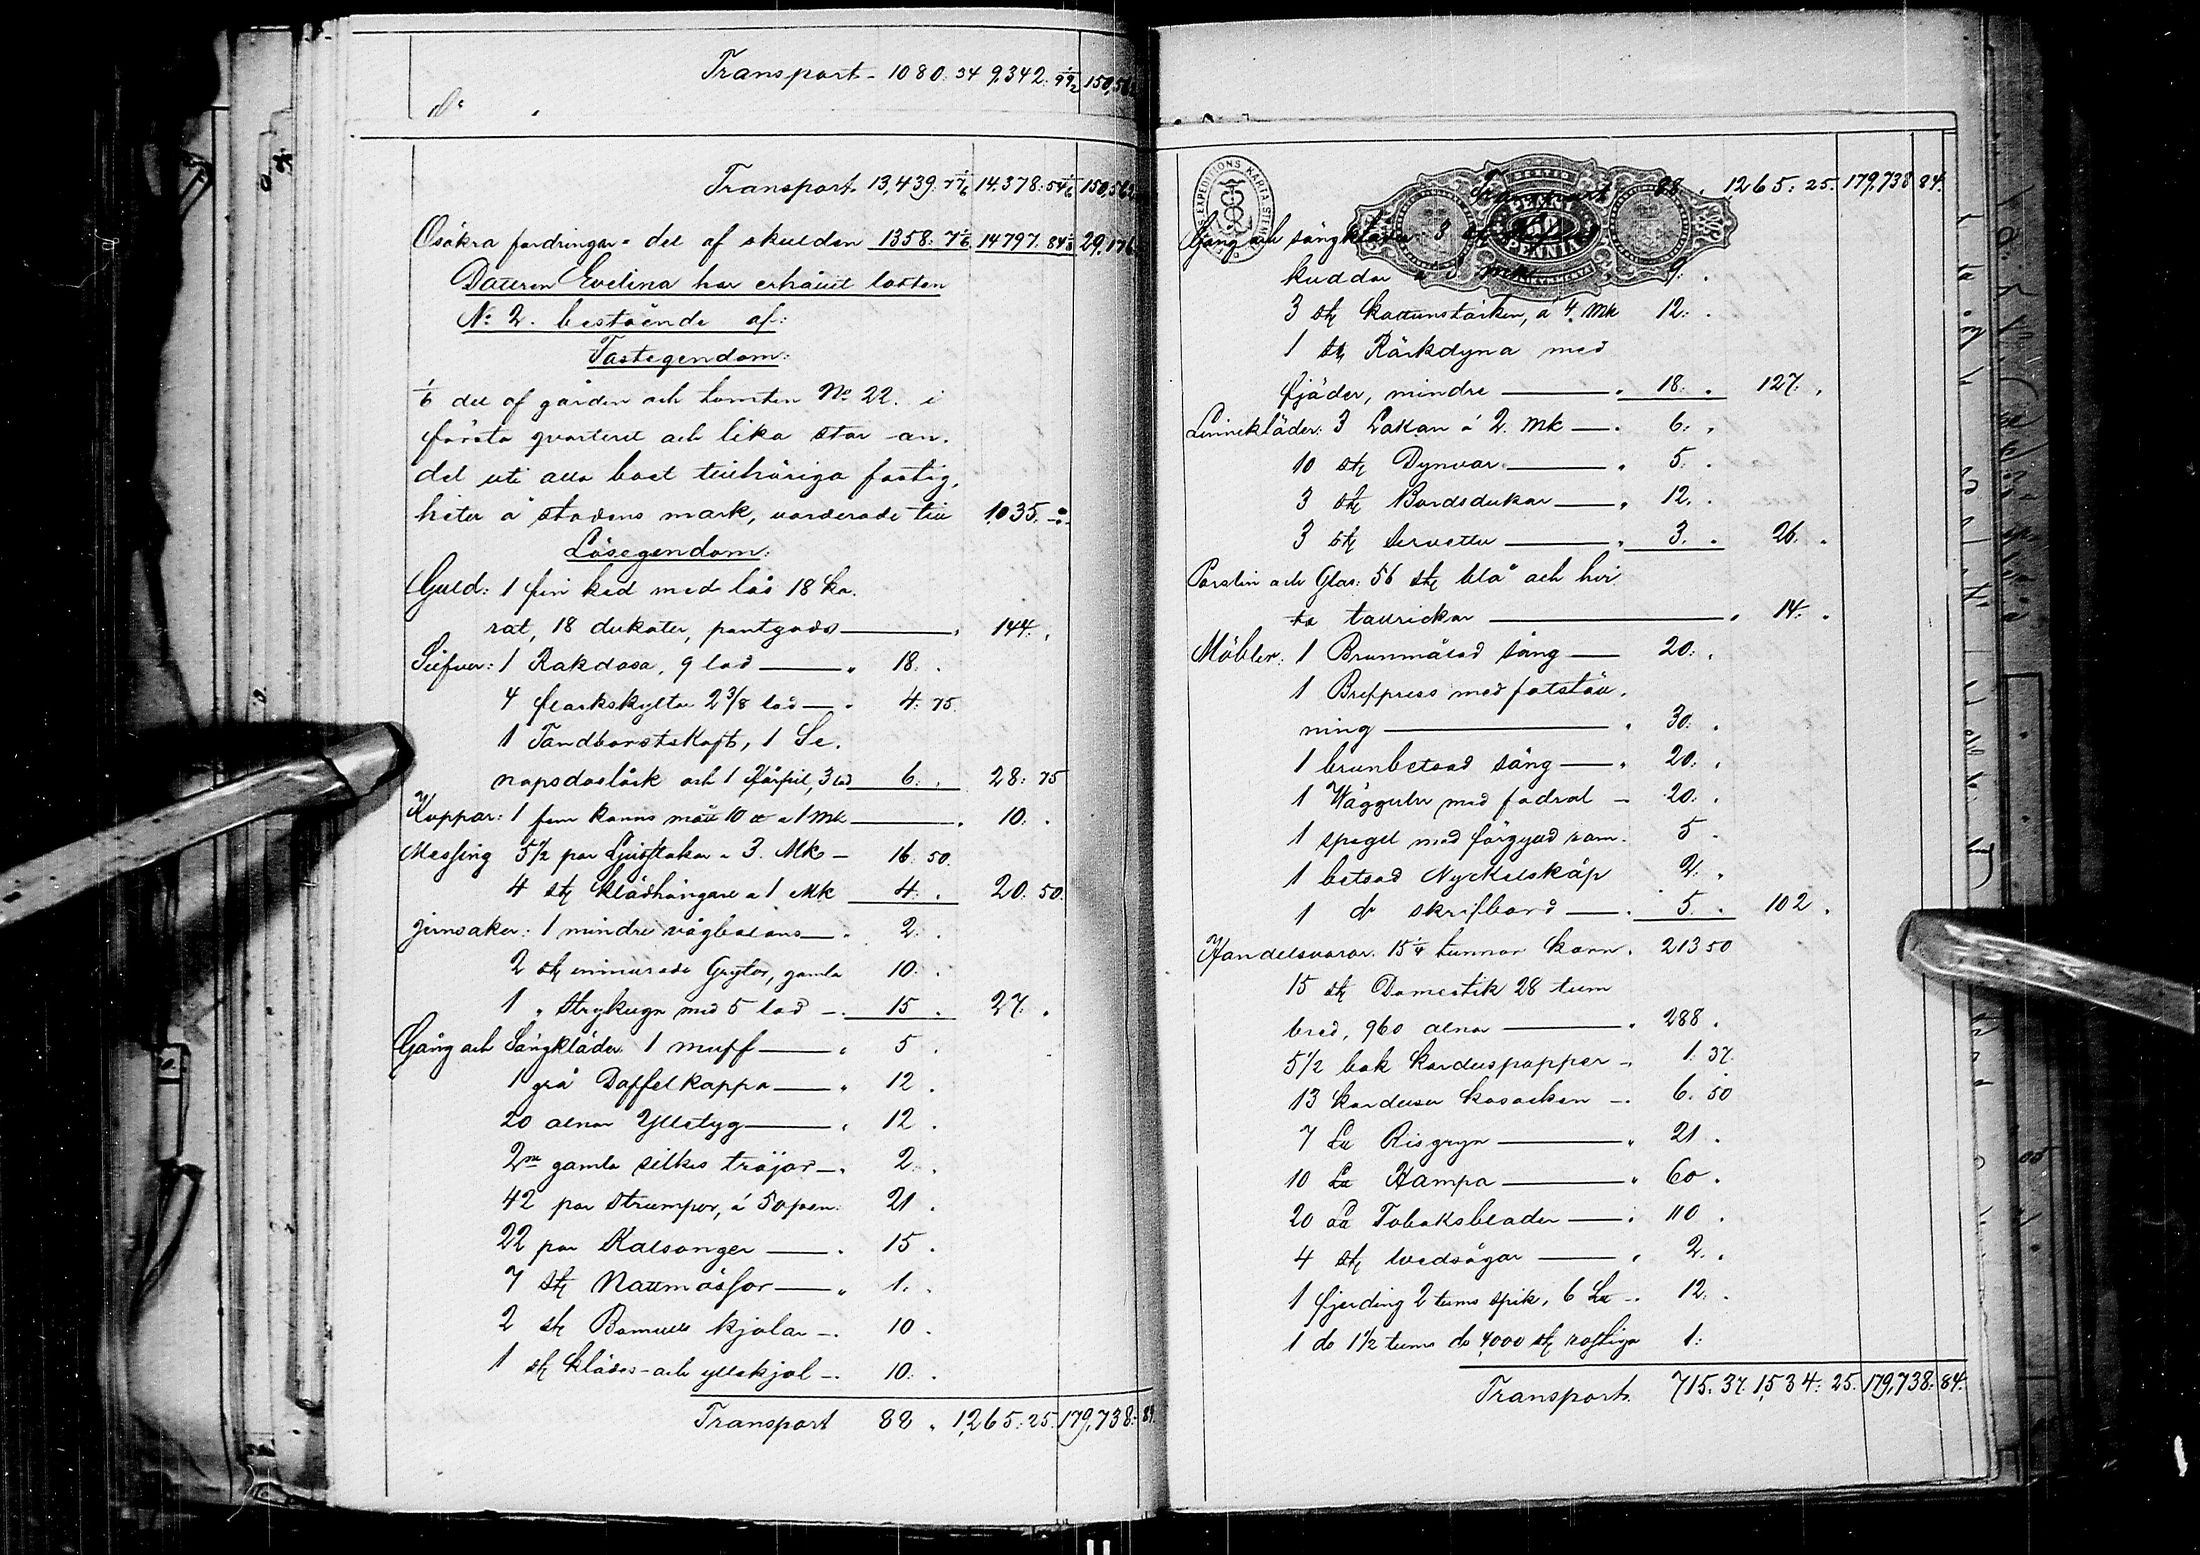 Transport 1080: 34 9,342:
d:o
Transport 13,439: 7 1/6 14,378: 54 1/6
Osäkra fordringar = del af skulden 1358: 7 1/6 14797. 84 1/3
Dottren Evelina har erhållit lotten
No: 2. bestående af:
Fastegendom:
1/6 del af gården och tomten No 22. i
första qvarteret och lika stor an-
del uti alla bort tillhöriga fastig-
heter å stadens mark, värderade till 1,035. -:-
Lösegendom:
Guld: 1 fin ked med lås 18 ka-
rat, 18 dukater, pantgods 144. "
Silfver: 1 Rakdosa, 9 lod " 18. "
4 flaskskyltar 2 3/8 lod " 4. 75.
1 Tandborstskaft, 1 Se-
napsdoslock och 1 , 3 lod 6. " 28: 75
Koppar: 1 fem kanns mått 10 a 1 Mk " 10. "
Messing 5 1/2 par Ljusstakar a 3. Mk 16. 50.
4 stk klädhängare a 1 Mk 4. " 20: 50.
Jernsaker: 1 mindre vågbalans " 2. "
2 stk inmurade Grytor, gamla 10. "
1 " Strykugn med 5 lod 15 " 27. "
Gång och Sängkläder 1 muff " 5 "
1 grå Doffelkappa " 12 "
20 alnar Ylletyg " 12 "
2ne gamla silkes tröjor " 2. "
42 par Strumpor, á 50 pen: 21 "
22 par Kalsonger " 15 "
7 stk Nattmössor " 1. "
2 stk Bomulls kjolar 10 "
1 stk klädes- och yllekjol 10. "
Transport 88 " 1,265: 25. 179,738: 84
Transport 88. " 1,265. 25. 179,738 84.
Gång och sängkläder: 3 stk
kuddar a 3 mk 9. "
3 stk , á 4. Mk 12. "
1 stk dyna med
fjäder, mindre " 18. " 127. "
Linnekläder: 3 Lakan á 2. Mk 6. "
10 stk Dynvar " 5. "
3 stk Bordsdukar " 12. "
3 stk Servetter " 3. " 26. "
Porslin och Glas: 56 stk blå och hvi
ta tallrickar " 14. "
Möbler: 1 Brunmålad säng 20. "
1 Brefpress med fotställ-
ning " 30. "
1 brunbetsad säng " 20. "
1 Väggur med fodral 20. "
1 spegel med förgyld ram. 5 "
1 betsad Nyckelskåp 2. "
1 do skrifbord 5. " 102 "
Handelsvaror: 15 1/4 tunnor korn. 213 50
15 stk Domestik 28 tum
bred, 960 alnar " 288 "
5 1/2 bok karduspapper 1. 37.
13 karduser kosacken 6. 50
7 Risgryn " 21 "
10 Hampa " 60 "
20 Tobaksblader 110 "
4 stk vedsågar " 2. "
1 fjerding 2 tums spik, 6 12. "
1 do 1 1/2 tums do 4,000 stk rostiga 1:
Transport. 715. 37. 1,534: 25. 179,738: 84.